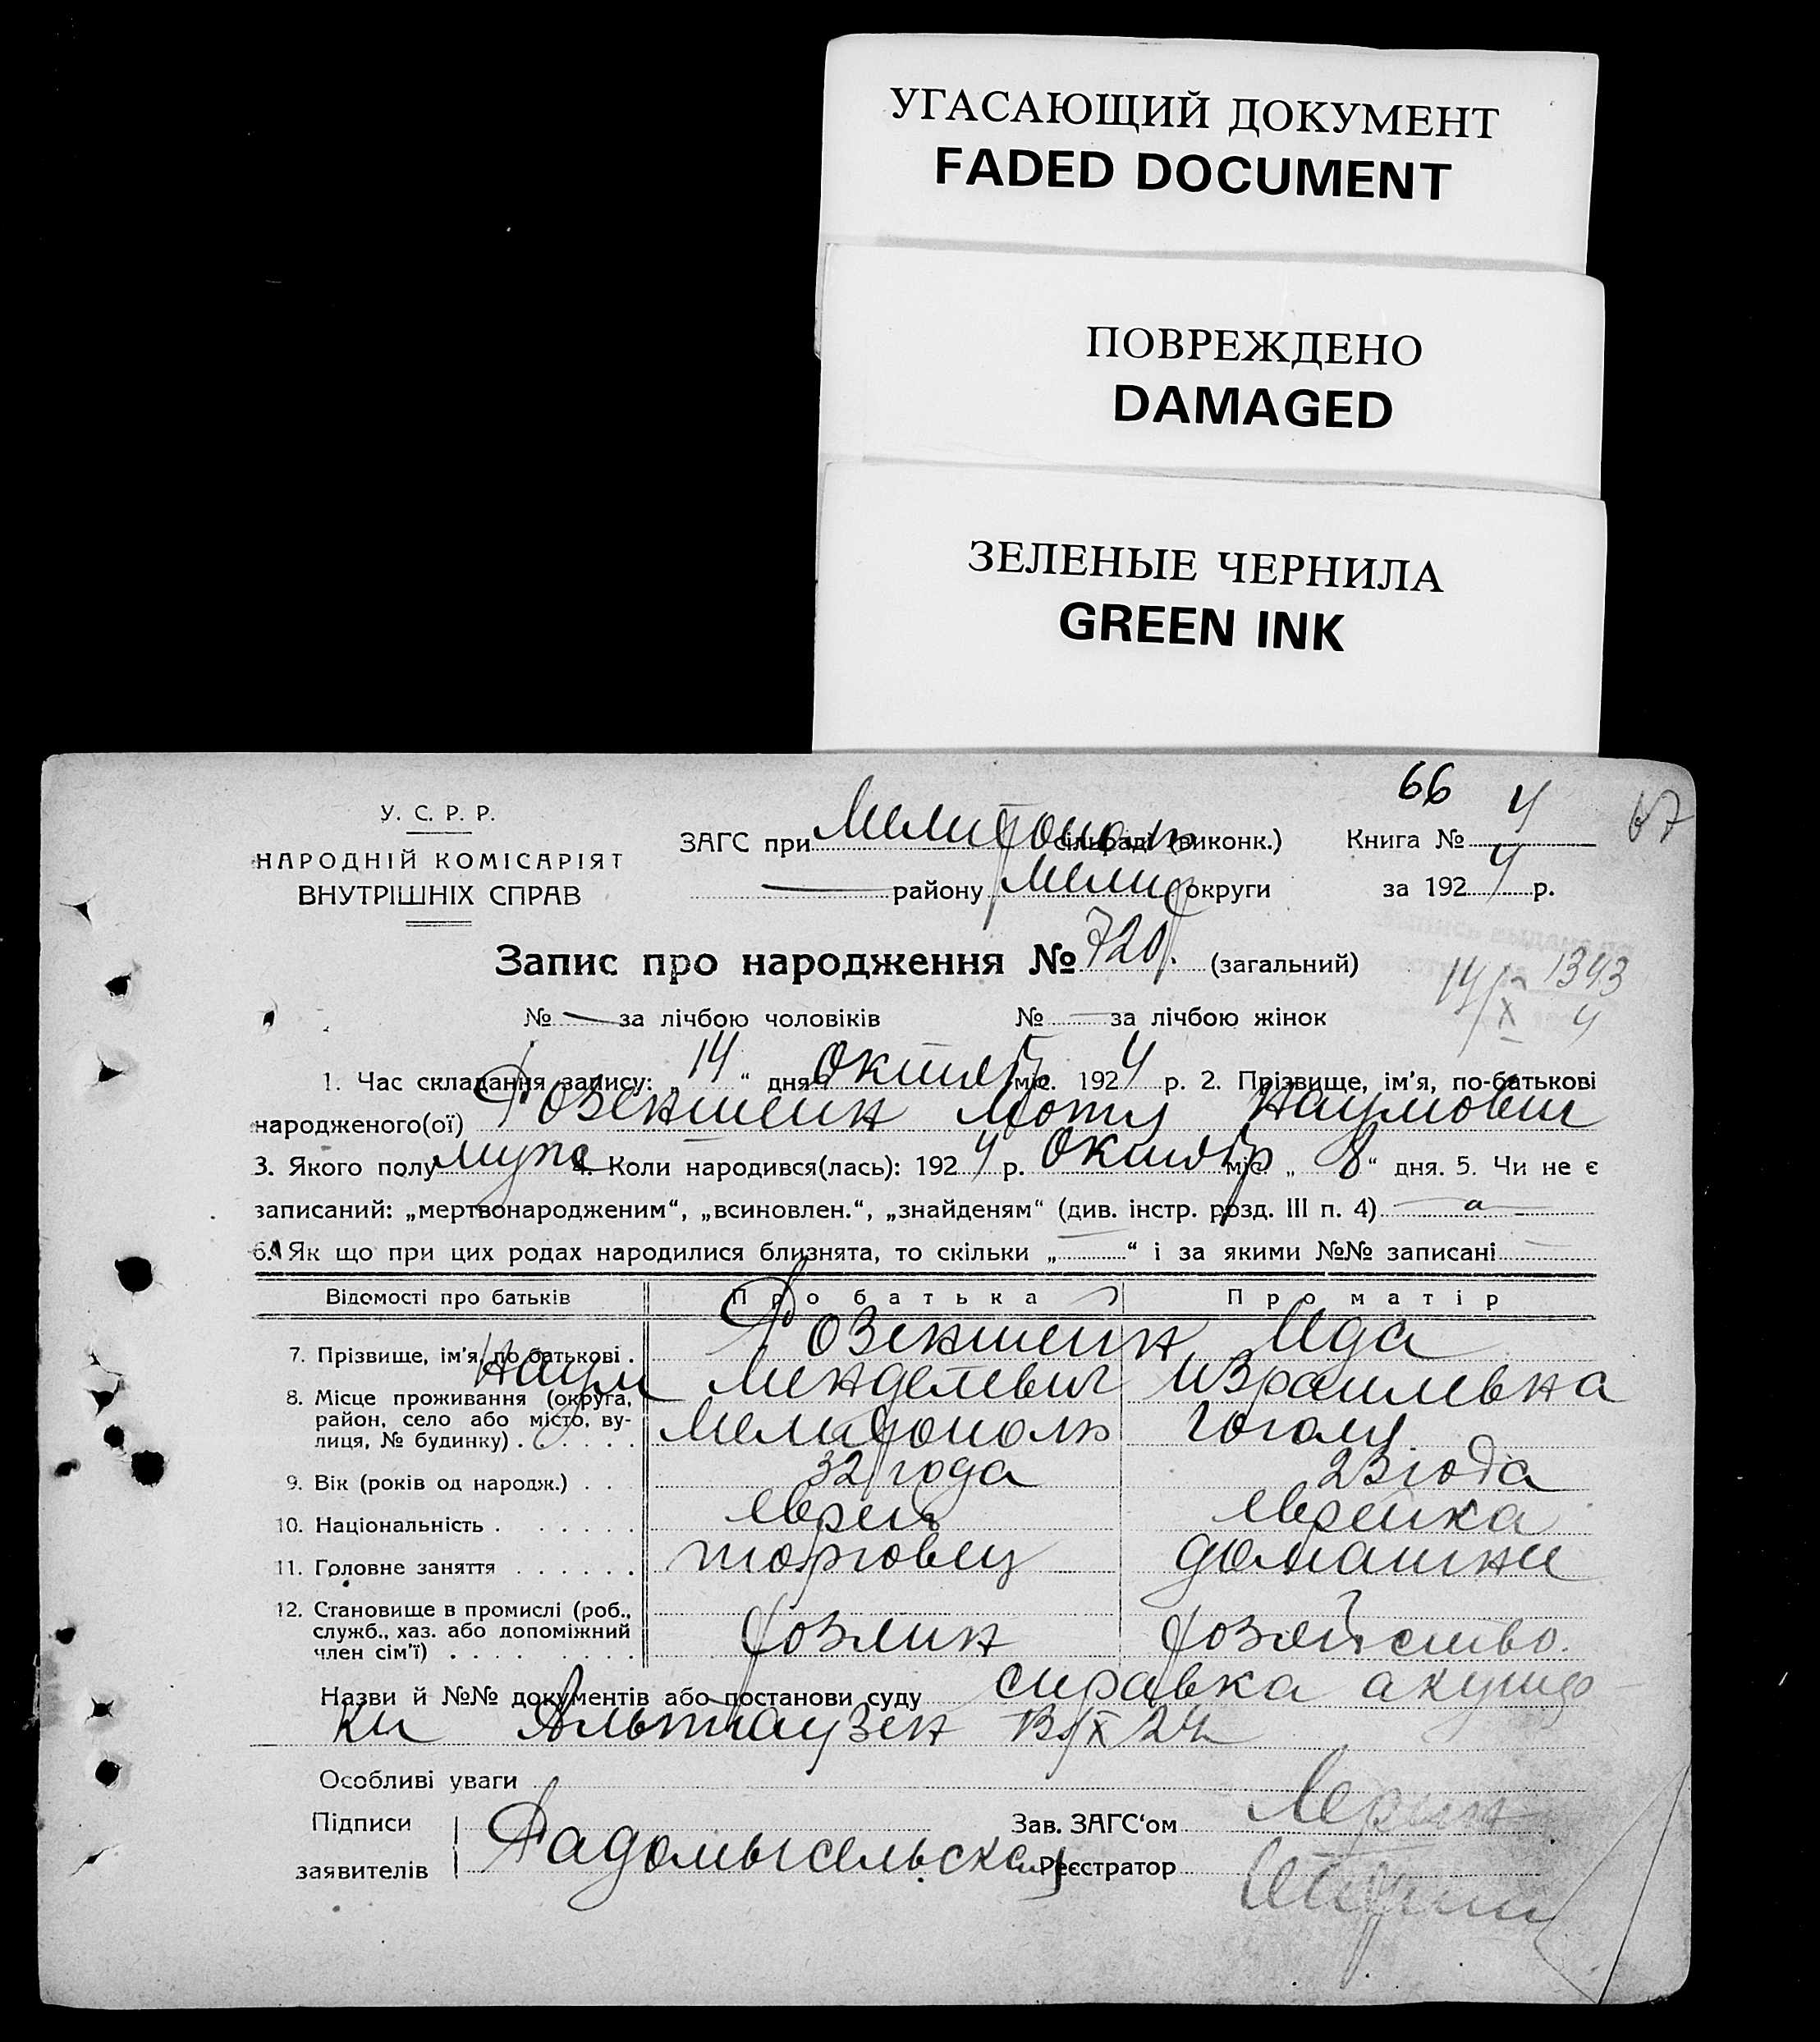 УГАСАЮЩИЙ ДОКУМЕНТ
FADED DOCUMENT
ПОВРЕЖДЕНО
DAMAGED
ЗЕЛЕНЫЕ ЧЕРНИЛА
GREEN INK
66 67
У. С. Р. Р.
НАРОДНІЙ КОМІСАРІЯТ
ВНУТРІШНІХ СПРАВ
ЗАГС при Мелитополь сільраді (виконк.) Книга № 4
району Мелит округи за 1924 р.
Запис про народження № 720 (загальний)
14/X 1343
4
№ — за лічбою чоловіків № — за лічбою жінок
1. Час складання запису: „14“ дня Октябр міс. 1924 р. 2. Прізвище, ім'я, по-батькові
народженого(ої) Розенштейн Мотя Наумович
3. Якого полу муж 4. Коли народився(лась): 1924 р. Октябр міс. „8“ дня. 5. Чи не є
записаний: „мертвонародженим“, „всиновлен.“, „знайденям“ (див. інстр. розд. III п. 4)
6. Як що при цих родах народилися близнята, то скільки „ “ і за якими №№ записані
Відомості про батьків Про батька Про матір
7. Прізвище, ім'я, по батькові . Розенштейн Ида
Наум Менделевич Израилевна
8. Місце проживання (округа,
район, село або місто, ву-
лиця, № будинку) . . . . . . Мелитополь Гоголя
9. Вік (років од народж.) . . . 32 года 23 года
10. Національність . . . . . . еврей еврейка
11. Головне заняття . . . . . . торговец домашнее
12. Становище в промислі (роб.,
служб., хаз. або допоміжний
член сім'ї) . . . . . . . . хозяин хозяйство.
Назви й №№ документів або постанови суду справка акушер-
ки Альтгаузен 13/X 24
Особливі уваги
Підписи
заявителів Радомысельская
Зав. ЗАГС'ом
Реєстратор